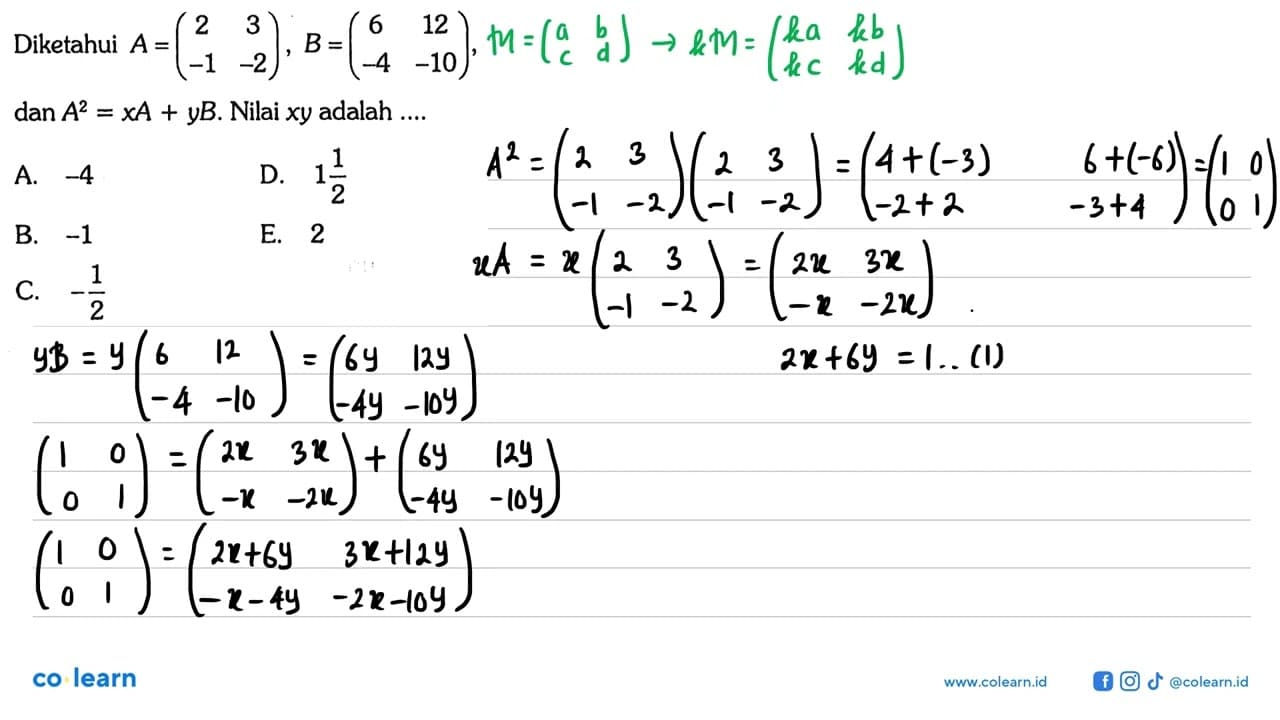 Diketahui A = (2 3 −1 −2), B = (6 12 −4 −10), M = (a b c d) → kM = (ka kb kc kd)
dan A² = xA + yB. Nilai xy adalah ....
A. −4
B. −1
C. −1/2
D. 1 1/2
E. 2
A² = (2 3 −1 −2)(2 3 −1 −2) = (4+(−3) 6+(−6) −2+2 −3+4) = (1 0 0 1)
xA = x(2 3 −1 −2) = (2x 3x −x −2x)
yB = y(6 12 −4 −10) = (6y 12y −4y −10y)
2x+6y = 1.. (1)
(1 0 0 1) = (2x 3x −x −2x) + (6y 12y −4y −10y)
(1 0 0 1) = (2x+6y 3x+12y −x−4y −2x−10y)
co learn
www.colearn.id
@colearn.id